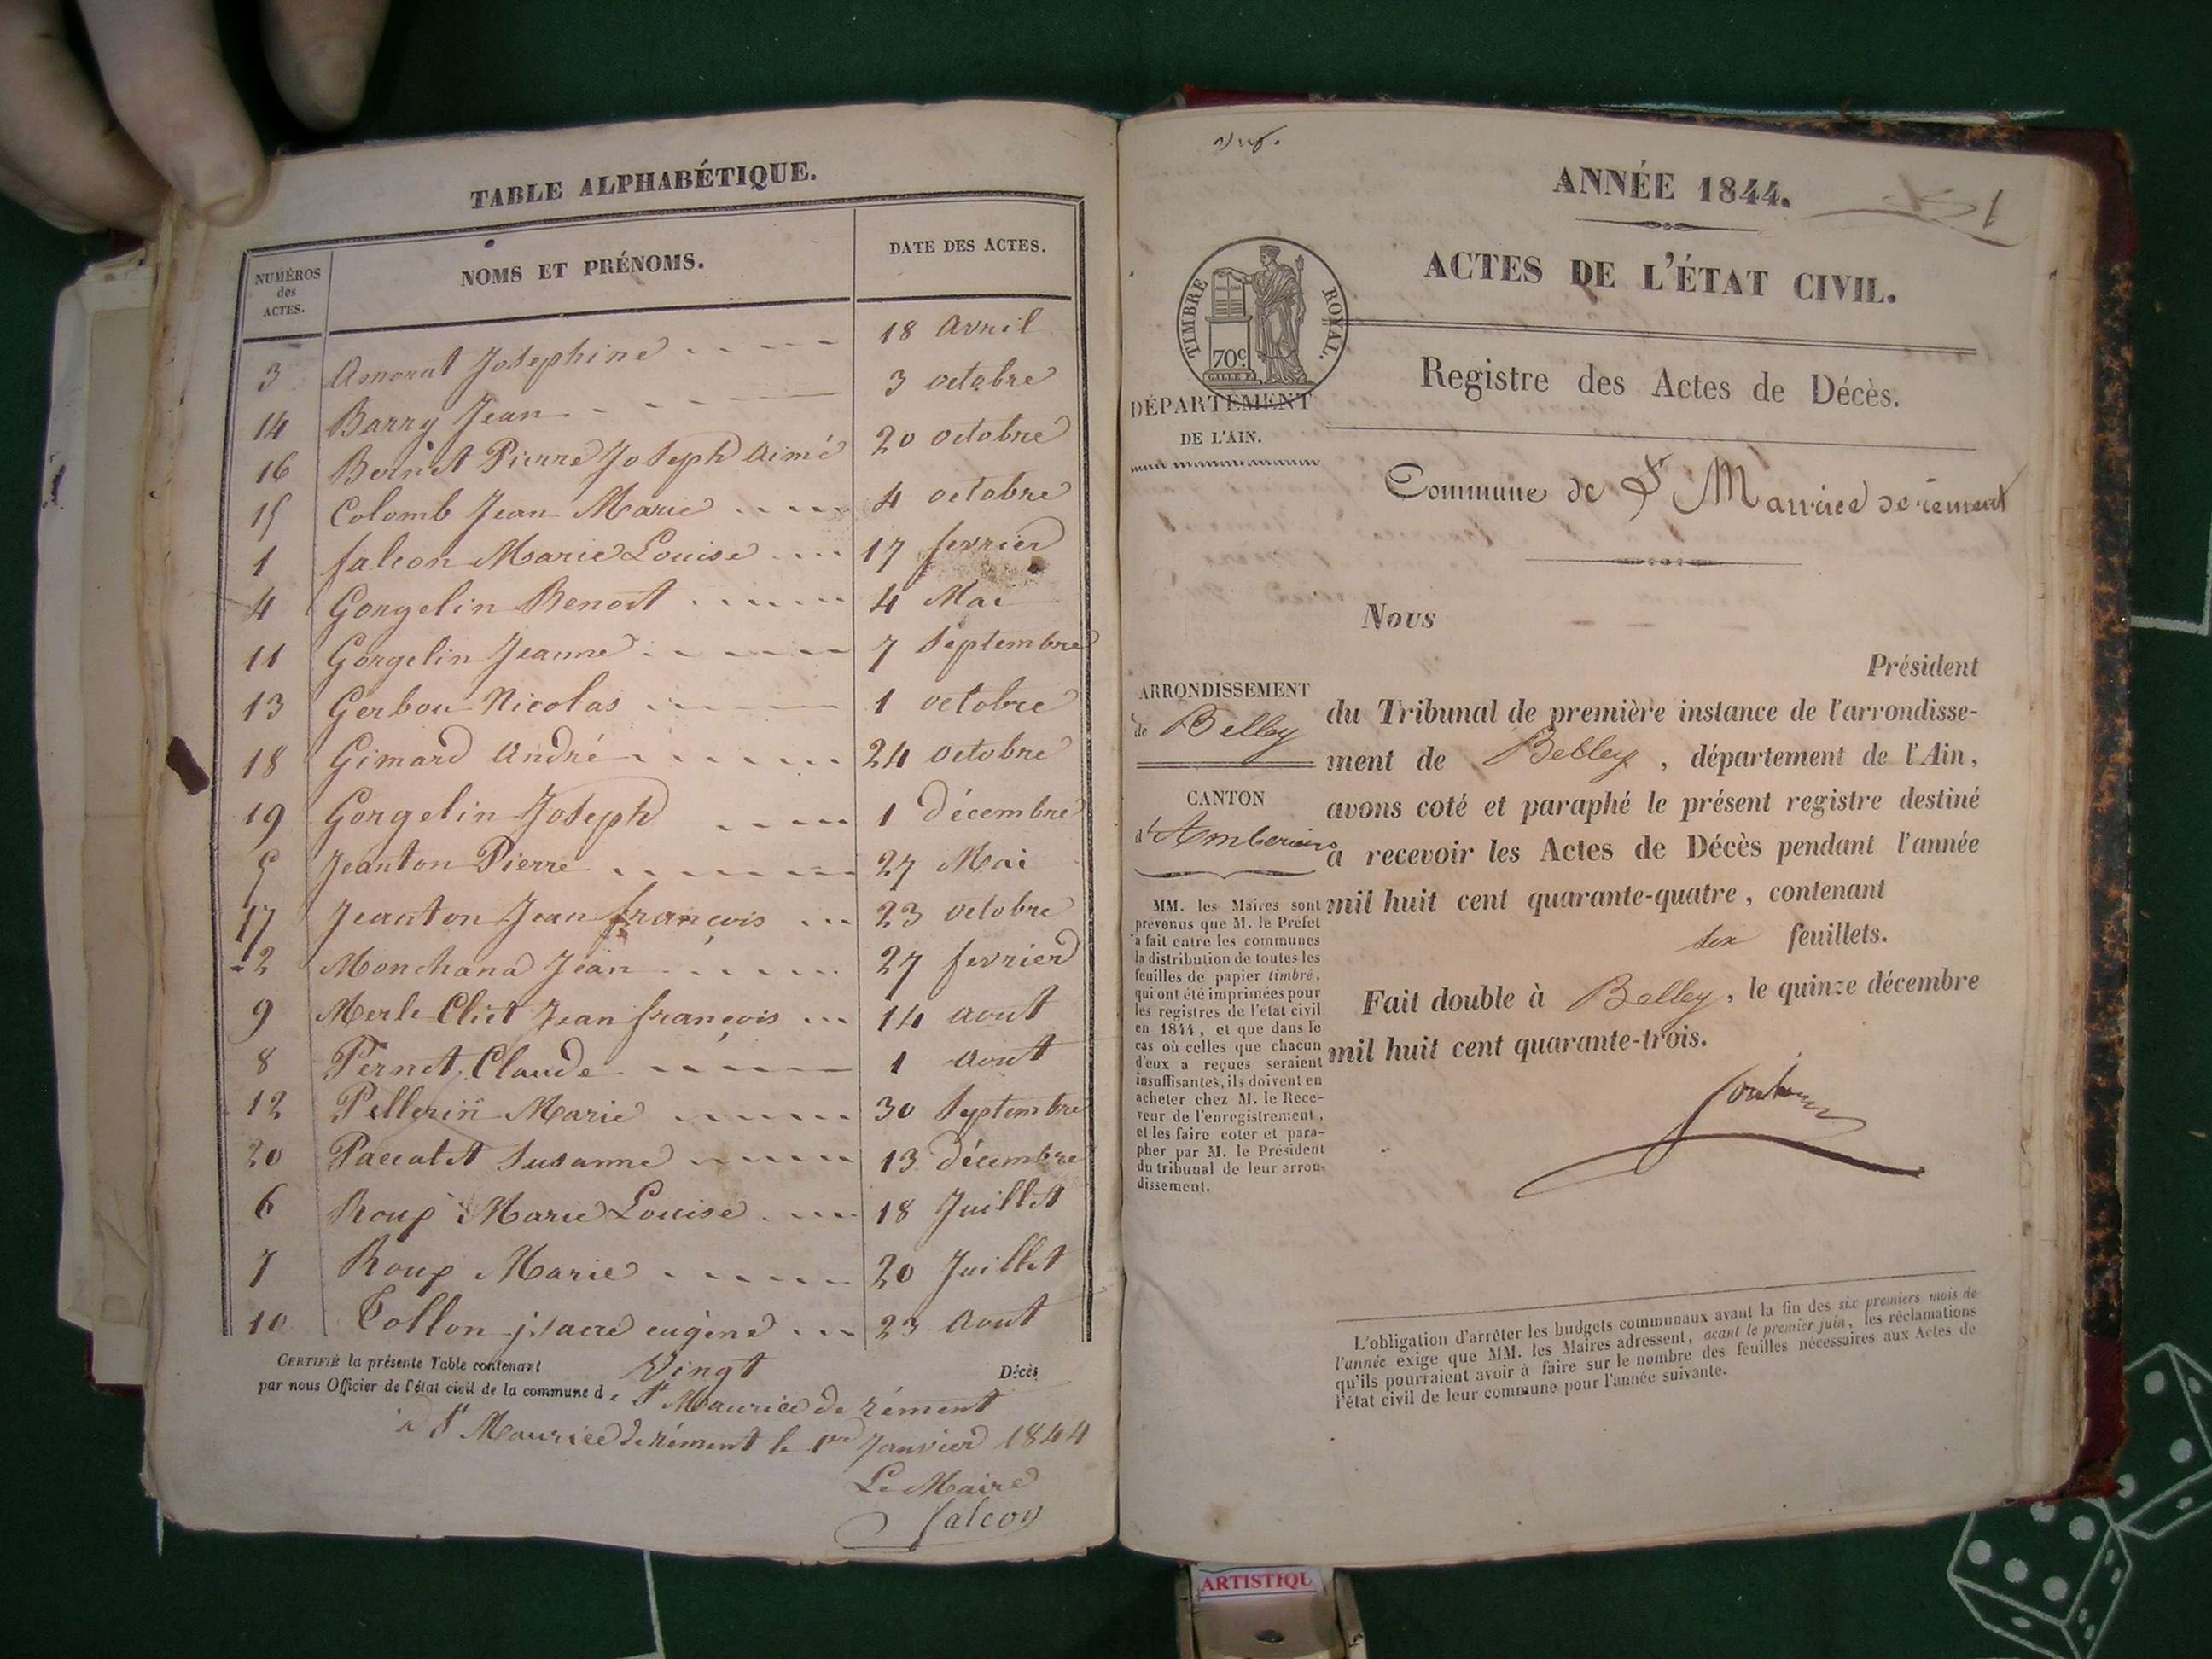 TABLE ALPHABÉTIQUE.
NUMÉROS des ACTES.
NOMS ET PRÉNOMS.
DATE DES ACTES.
3 Amorat Josephine 18 Avril
14 Barry Jean 3 octobre
16 Bernet Pierre Joseph Aimé 20 octobre
15 Colomb Jean Marie 4 octobre
1 falcon Marie Louise 17 fevrier
4 Gorgelin Benoit 4 Mai
11 Gorgelin Jeanne 7 Septembre
13 Gerbou Nicolas 1 octobre
18 Gimard André 24 octobre
19 Gorgelin Joseph 1 Décembre
5 Jeanton Pierre 27 Mai
17 Jeanton Jean françois 23 octobre
2 Monchand Jean 27 fevrier
9 Merle Cliet Jean françois 14 aout
8 Pernet Claude 1 Aout
12 Pellerin Marie 30 Septembre
20 Paccalet Susanne 13 décembre
6 Roup Marie Louise 18 Juillet
7 Roup Marie 20 Juillet
10 Tollon eugène 23 Aout
CERTIFIÉ la présente Table contenant Vingt Décès
par nous Officier de l'état civil de la commune de St Maurice de rément
à St Maurice de rément le 1er Janvier 1844
Le Maire
falcon
ANNÉE 1844.
1
ACTES DE L'ÉTAT CIVIL.
TIMBRE ROYAL.
70c
Registre des Actes de Décès.
DÉPARTEMENT
DE L'AIN.
Commune de St Maurice de rement
Nous
Président
du Tribunal de première instance de l'arrondisse-
ment de Belley, département de l'Ain,
avons coté et paraphé le présent registre destiné
a recevoir les Actes de Décès pendant l'année
mil huit cent quarante-quatre, contenant
six feuillets.
Fait double à Belley, le quinze décembre
mil huit cent quarante-trois.
ARRONDISSEMENT
de Belley
CANTON
d'Amberieux
MM. les Maires sont
prévenus que M. le Préfet
a fait entre les communes
la distribution de toutes les
feuilles de papier timbré,
qui ont été imprimées pour
les registres de l'état civil
en 1844, et que dans le
cas où celles que chacun
d'eux a reçues seraient
insuffisantes, ils doivent en
acheter chez M. le Rece-
veur de l'enregistrement,
et les faire coter et para-
pher par M. le Président
du tribunal de leur arron-
dissement.
L'obligation d'arrêter les budgets communaux avant la fin des six premiers mois de
l'année exige que MM. les Maires adressent, avant le premier juin, les réclamations
qu'ils pourraient avoir à faire sur le nombre des feuilles nécessaires aux Actes de
l'état civil de leur commune pour l'année suivante.
ARTISTIQU